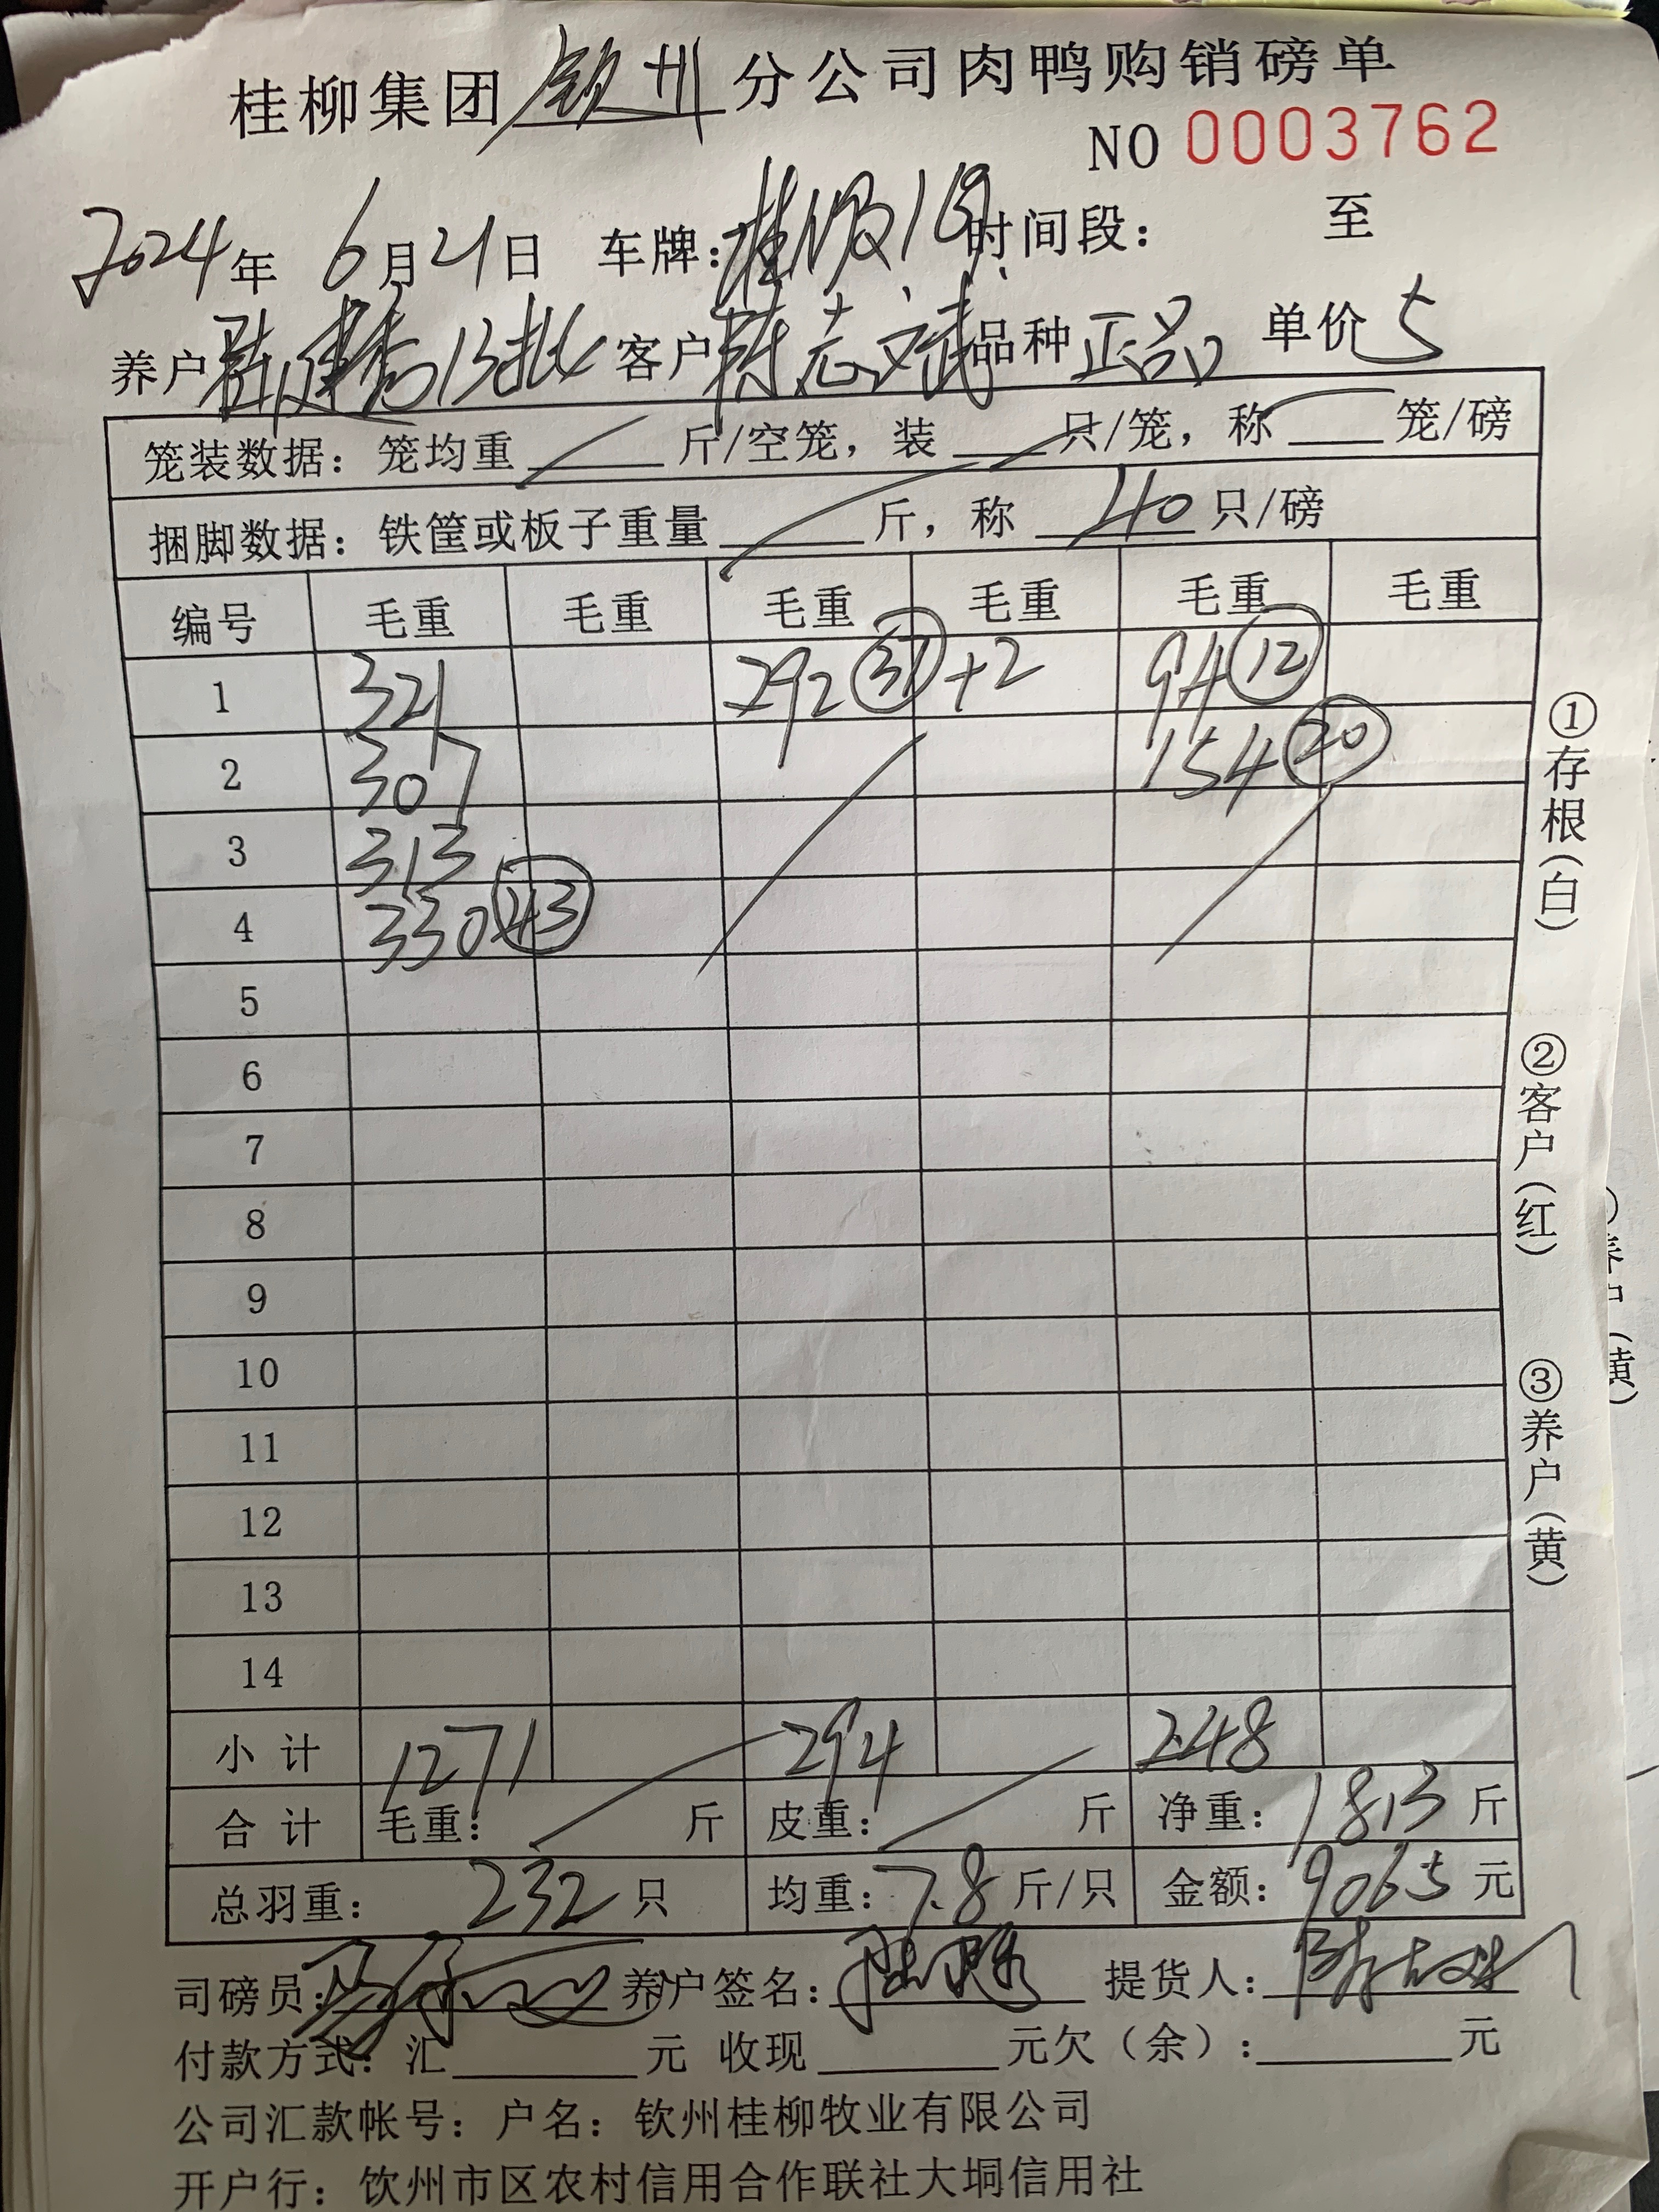 桂柳集团 钦州 分公司肉鸭购销磅单
NO 0003762
2024年 6月21日 车牌: 时间段: 至
养户 13批 客户 陈志斌 品种 正品 单价 5
笼装数据: 笼均重____斤/空笼, 装____只/笼, 称____笼/磅
捆脚数据: 铁筐或板子重量____斤, 称 40 只/磅
编号 毛重 毛重 毛重 毛重 毛重 毛重
1 321 292 37 +2 94 12
2 307 154 20
3 313
4 330 43
5
6
7
8
9
10
11
12
13
14
小 计 1271 294 248
合 计 毛重: 斤 皮重: 斤 净重: 1813 斤
总羽重: 232 只 均重: 7.8 斤/只 金额: 9065 元
司磅员: 养户签名: 提货人: 陈志斌
付款方式: 汇____元 收现____元欠(余):____元
公司汇款帐号: 户名: 钦州桂柳牧业有限公司
开户行: 钦州市区农村信用合作联社大垌信用社
①存根(白)
②客户(红)
③养户(黄)
养户(黄)